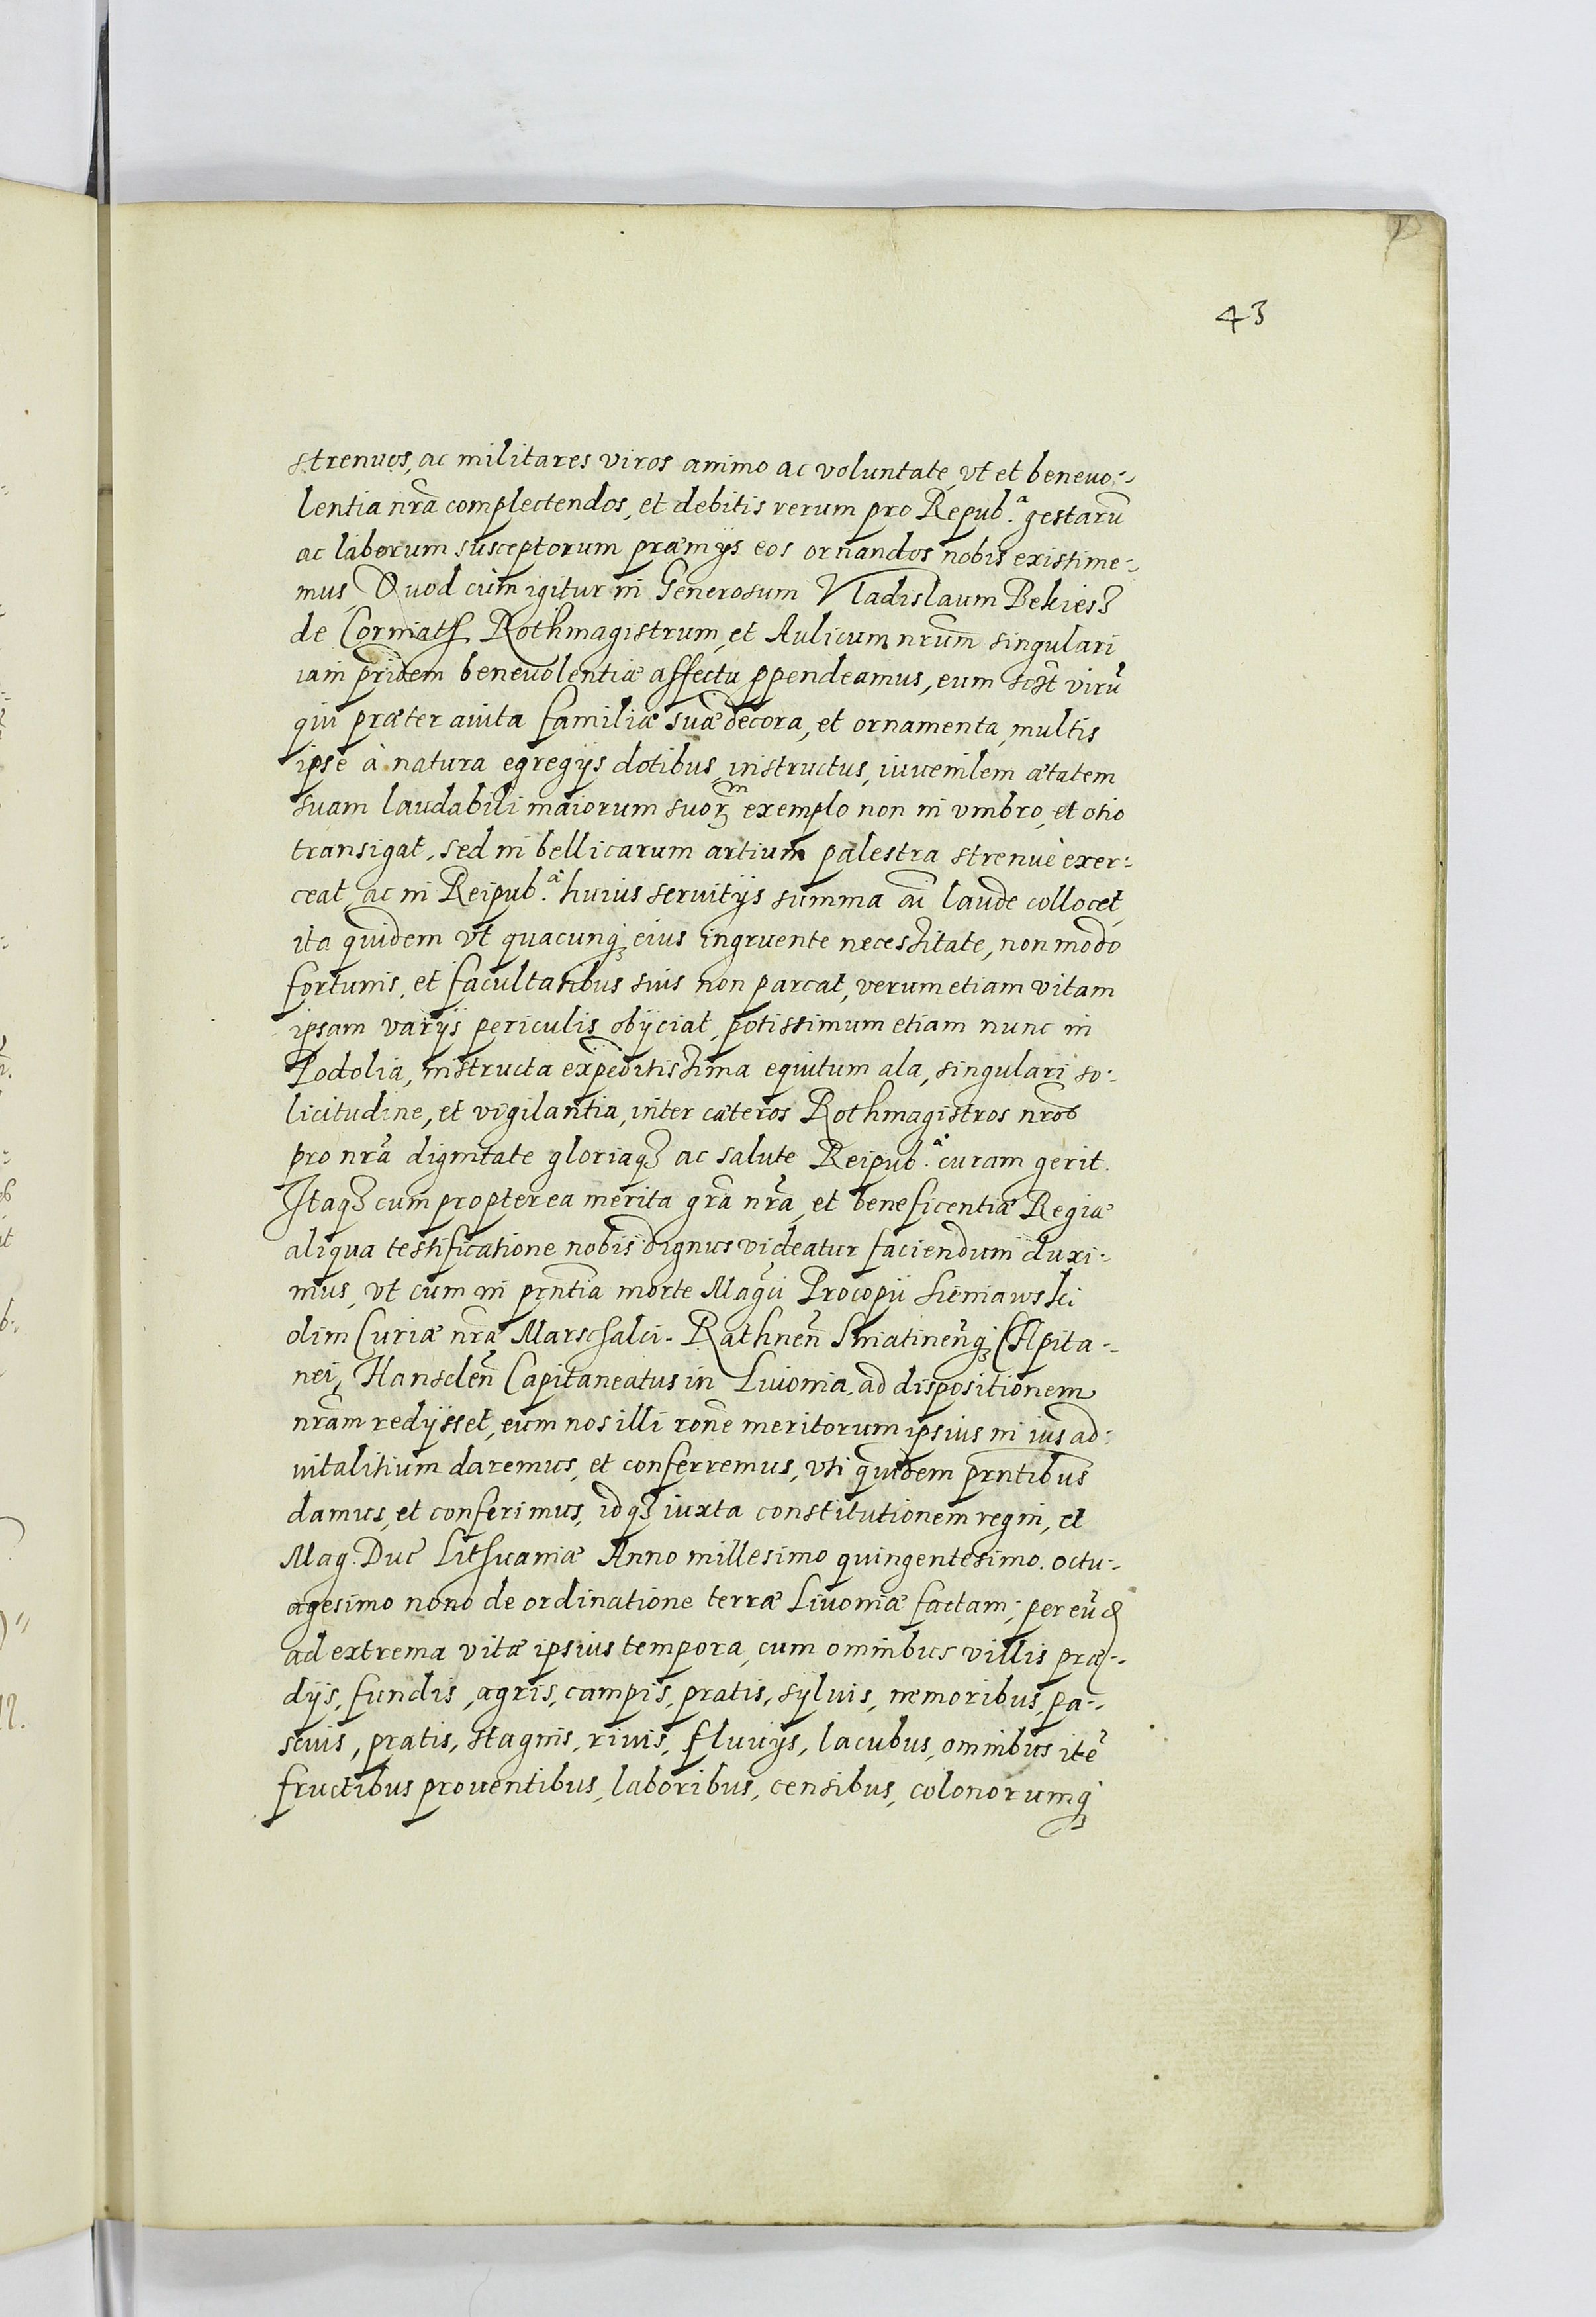 43
strenuos, ac militares viros animo ac voluntate, vt et beneuo-
lentia nrã complectendos, et debitis rerum pro Repub.ª gestarũ
ac laborum susceptorum præmijs eos ornandos nobis existime-
mus, Quod cùm igitur in Generosum Vladislaum Bekiesz
de Corniath Rothmagistrum, et Aulicum nrũm singulari
iam pridem beneuolentiæ affectu ꝓpendeamus, eum scȝt virũ
qui præter auita familiæ suæ decora, et ornamenta, multis
ipse à natura egregijs dotibus, instructus, iuuenilem ætatem
suam laudabili maiorum suorꝫ exemplo non in vmbro, et otio
transigat, sed in bellicarum artium palestra strenuè exer-
ceat, ac in Reipub.ª huius seruitijs summa cũ laude collocet,
ita quidem vt quacunqꝫ eius ingruente necessitate, non modo
fortunis, et facultatibus suis non parcat, verum etiam vitam
ipsam varijs periculis obijciat, potissimum etiam nunc in
Podolia, instructa expeditissima equitum ala, singulari so-
licitudine, et vigilantia, inter cæteros Rothmagistros nrõs
pro nrã dignitate gloriaqꝫ ac salute Reipub.ª curam gerit.
Itaqꝫ cum propterea merita grã nrã, et beneficentiæ Regiæ
aliqua testificatione nobis dignus videatur faciendum duxi-
mus, vt cum in prñtia morte Magci Procopii Sieniawski
olim Curiæ nrã Marschalci. Rathneñ Sniatineñqꝫ Capita-
nei, Hanscleñ Capitaneatus in Liuonia, ad dispositionem
nrãm redijsset, eum nos illi rõne meritorum ipsius in ius ad-
uitalitium daremus, et conferremus, vti quidem prñtibus
damus, et conferimus, idqꝫ iuxta constitutionem regni, et
Mag. Duc Lithuaniæ Anno millesimo quingentesimo. octu-
agesimo nono de ordinatione terræ Liuoniæ factam; per eũd
ad extrema vitæ ipsius tempora, cum omnibus villis præ-
dijs, fundis, agris, campis, pratis, syluis, nemoribus, pa-
scuis, pratis, stagnis, riuis, fluuijs, lacubus, omnibus itẽ
fructibus prouentibus, laboribus, censibus, colonorumqꝫ